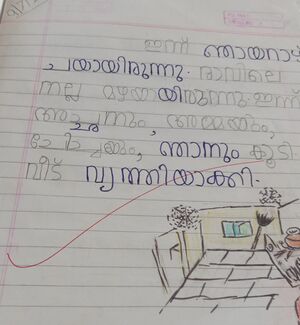 ഇന്ന് ഞായറാഴ്
ചയായിരുന്നു. രാവിലെ
നല്ല മഴയായിരുന്നു. ഇന്ന്
അച്ഛനും, അമ്മയും,
ചേച്ചിയും, ഞാനും കൂടി
വീട് വൃത്തിയാക്കി.